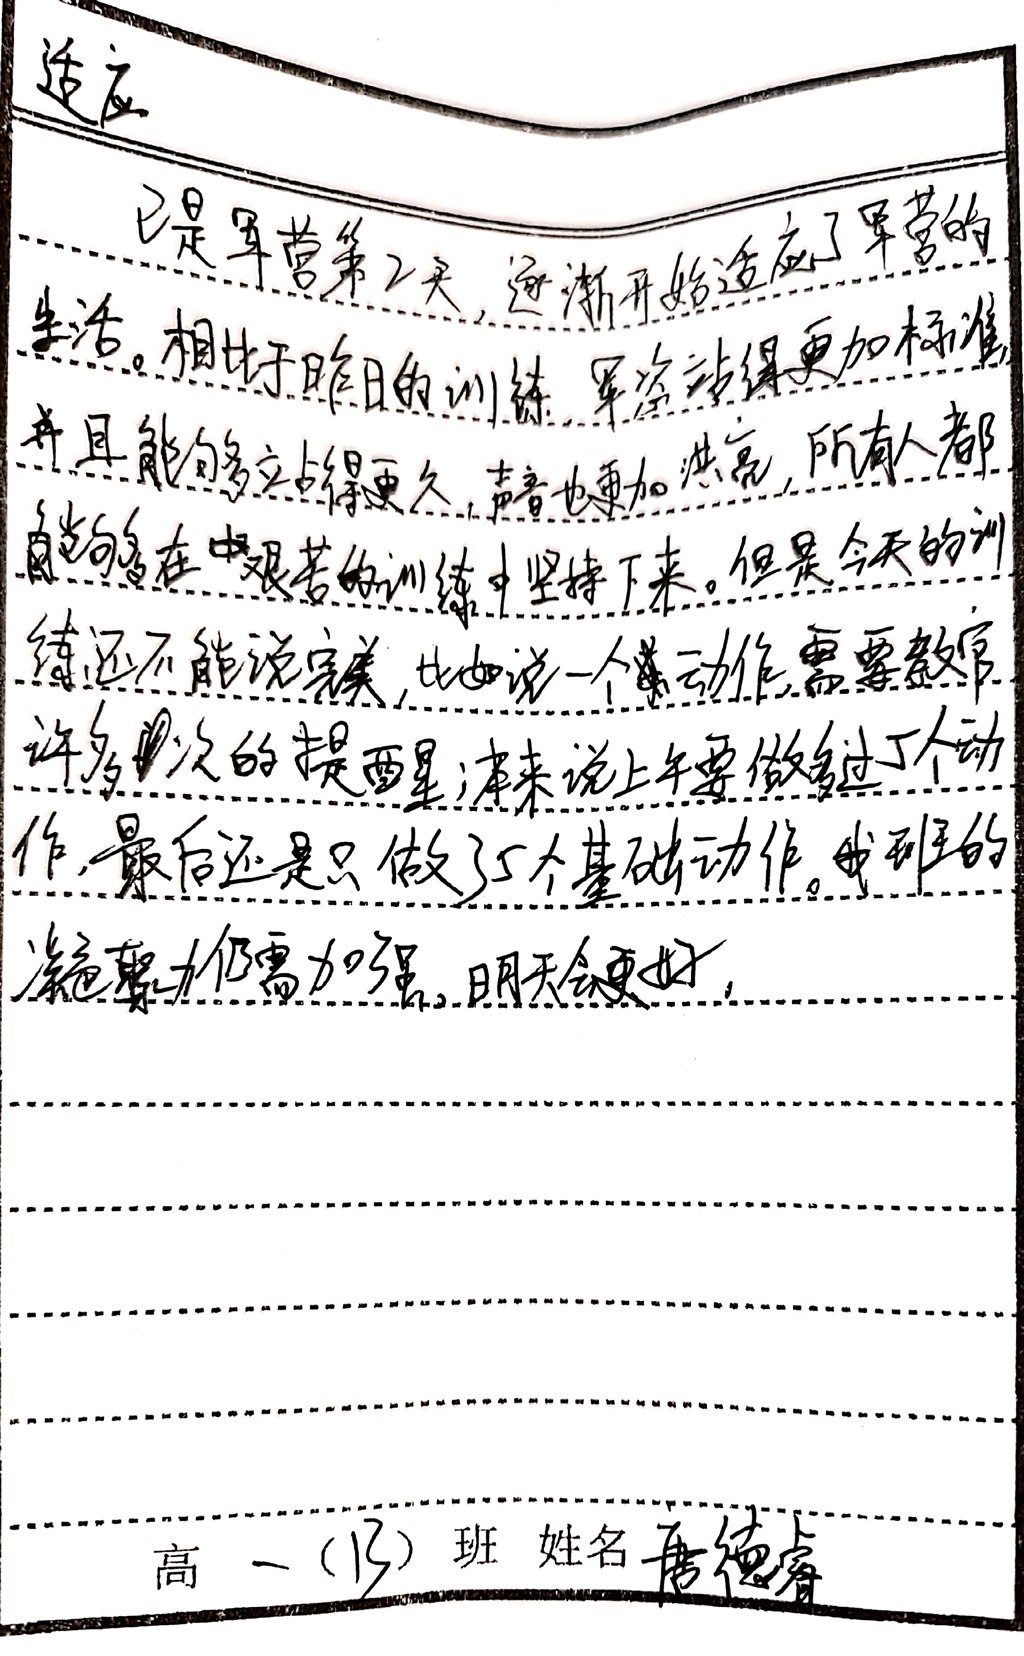 适应
已是军营第2天,逐渐开始适应了军营的
生活。相比于昨日的训练,军姿站得更加标准,
并且能够站得更久,声音也更加洪亮,所有人都
能够在艰苦的训练中坚持下来。但是今天的训
练还不能说完美,比如说一个动作,需要教官
许多次的提醒;本来说上午要做多过5个动
作,最后还是只做了5个基础动作。我班的
凝聚力仍需加强。明天会更好,
高一(13)班 姓名 唐德睿